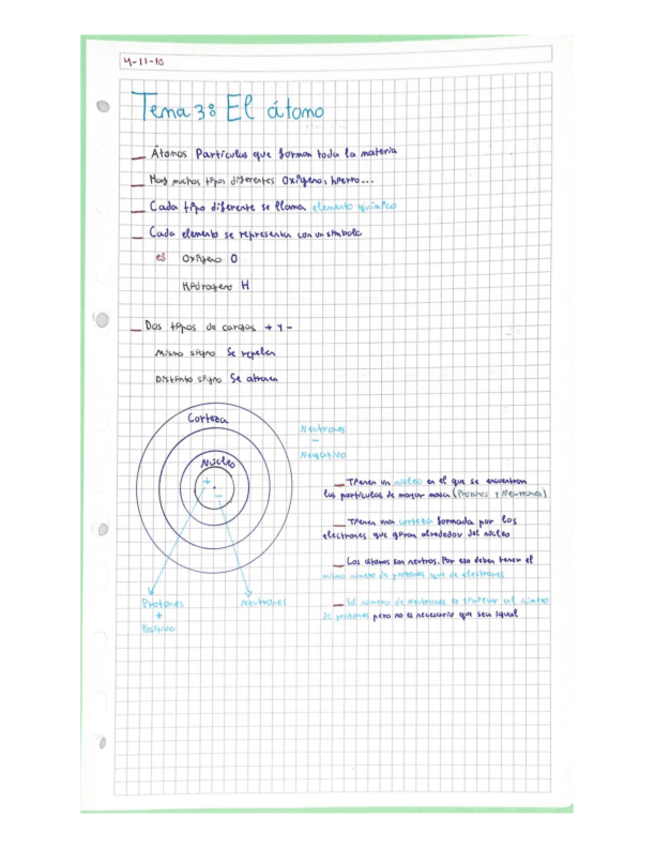 4-11-10
Tema 3: El átomo
Átomos Partículas que forman toda la materia
Hay muchos tipos diferentes Oxígeno, hierro...
Cada tipo diferente se llama elemento químico
Cada elemento se representa con un símbolo
Oxígeno O
Hidrogeno H
Dos tipos de cargas + y -
Mismo signo Se repelen
Distinto signo Se atraen
Corteza
Núcleo
+
-
Neutrones
-
Negativo
Tienen un núcleo en el que se encuentran
las partículas de mayor masa (Protones y Neutrones)
Tienen una corteza formada por los
electrones que giran alrededor del núcleo
Los átomos son neutros. Por eso deben tener el
mismo número de protones que de electrones
El número de Neutrones es similar al número
de protones pero no es necesario que sea igual
Protones
+
Positivo
Neutrones